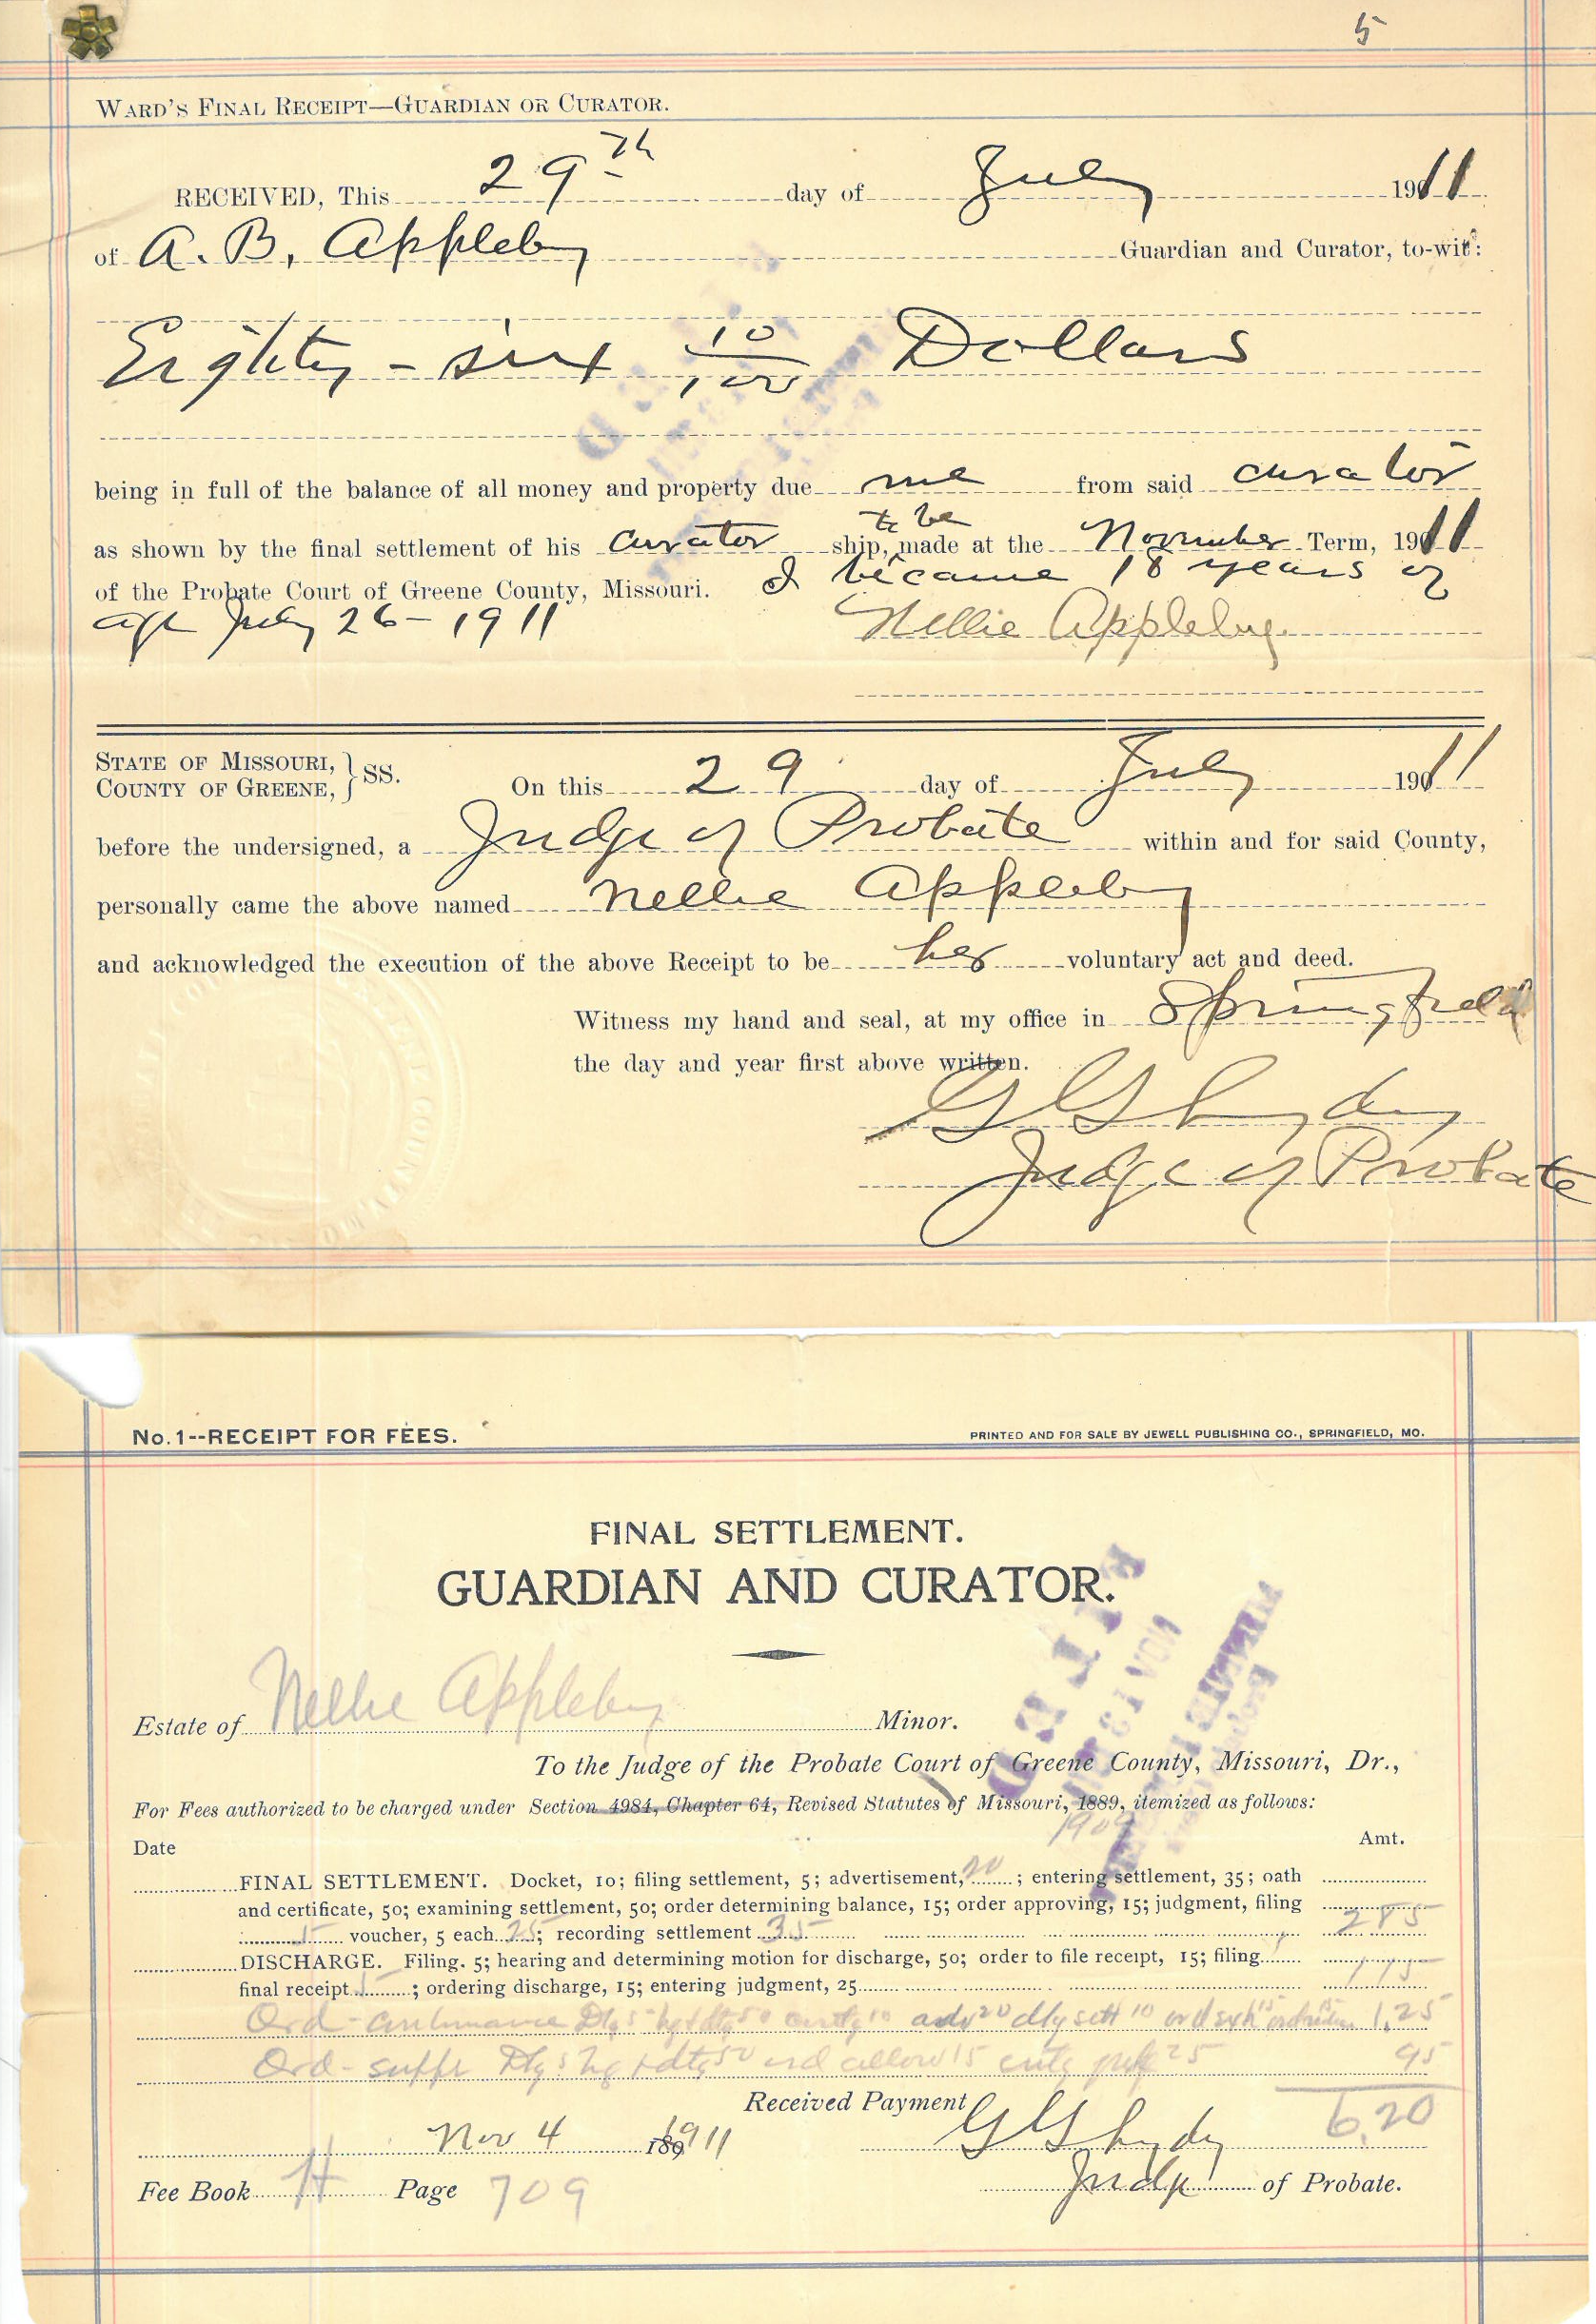 5
WARD'S FINAL RECEIPT—GUARDIAN OR CURATOR.
RECEIVED, This 29th day of July 1911
of A. B. Appleby Guardian and Curator, to-wit:
Eighty-six 10/100 Dollars
being in full of the balance of all money and property due me from said curator
to be
as shown by the final settlement of his curator ship, made at the November Term, 1911
of the Probate Court of Greene County, Missouri. I became 18 years of
age July 26-1911 Nellie Appleby
STATE OF MISSOURI, } SS.
COUNTY OF GREENE, On this 29 day of July 1911
before the undersigned, a Judge of Probate within and for said County,
personally came the above named Nellie Appleby
and acknowledged the execution of the above Receipt to be her voluntary act and deed.
Witness my hand and seal, at my office in Springfield
the day and year first above written.
G G Lydy
Judge of Probate
No. 1--RECEIPT FOR FEES. PRINTED AND FOR SALE BY JEWELL PUBLISHING CO., SPRINGFIELD, MO.
FINAL SETTLEMENT.
GUARDIAN AND CURATOR.
FILED
NOV 13 1911
Estate of Nellie Appleby Minor.
To the Judge of the Probate Court of Greene County, Missouri, Dr.,
For Fees authorized to be charged under Section 4984, Chapter 64, Revised Statutes of Missouri, 1889, itemized as follows:
1909
Date Amt.
FINAL SETTLEMENT. Docket, 10; filing settlement, 5; advertisement, 20; entering settlement, 35; oath
and certificate, 50; examining settlement, 50; order determining balance, 15; order approving, 15; judgment, filing
5 voucher, 5 each 25; recording settlement 35 2 85
DISCHARGE. Filing. 5; hearing and determining motion for discharge, 50; order to file receipt, 15; filing
final receipt 5; ordering discharge, 15; entering judgment, 25 1 15
Ord- 50 10 adv 20 sett 10 1,25
Ord- 50 ord allow 15 25 95
Received Payment 6,20
Nov 4 1911 G G Lydy
Fee Book H Page 709 Judge of Probate.